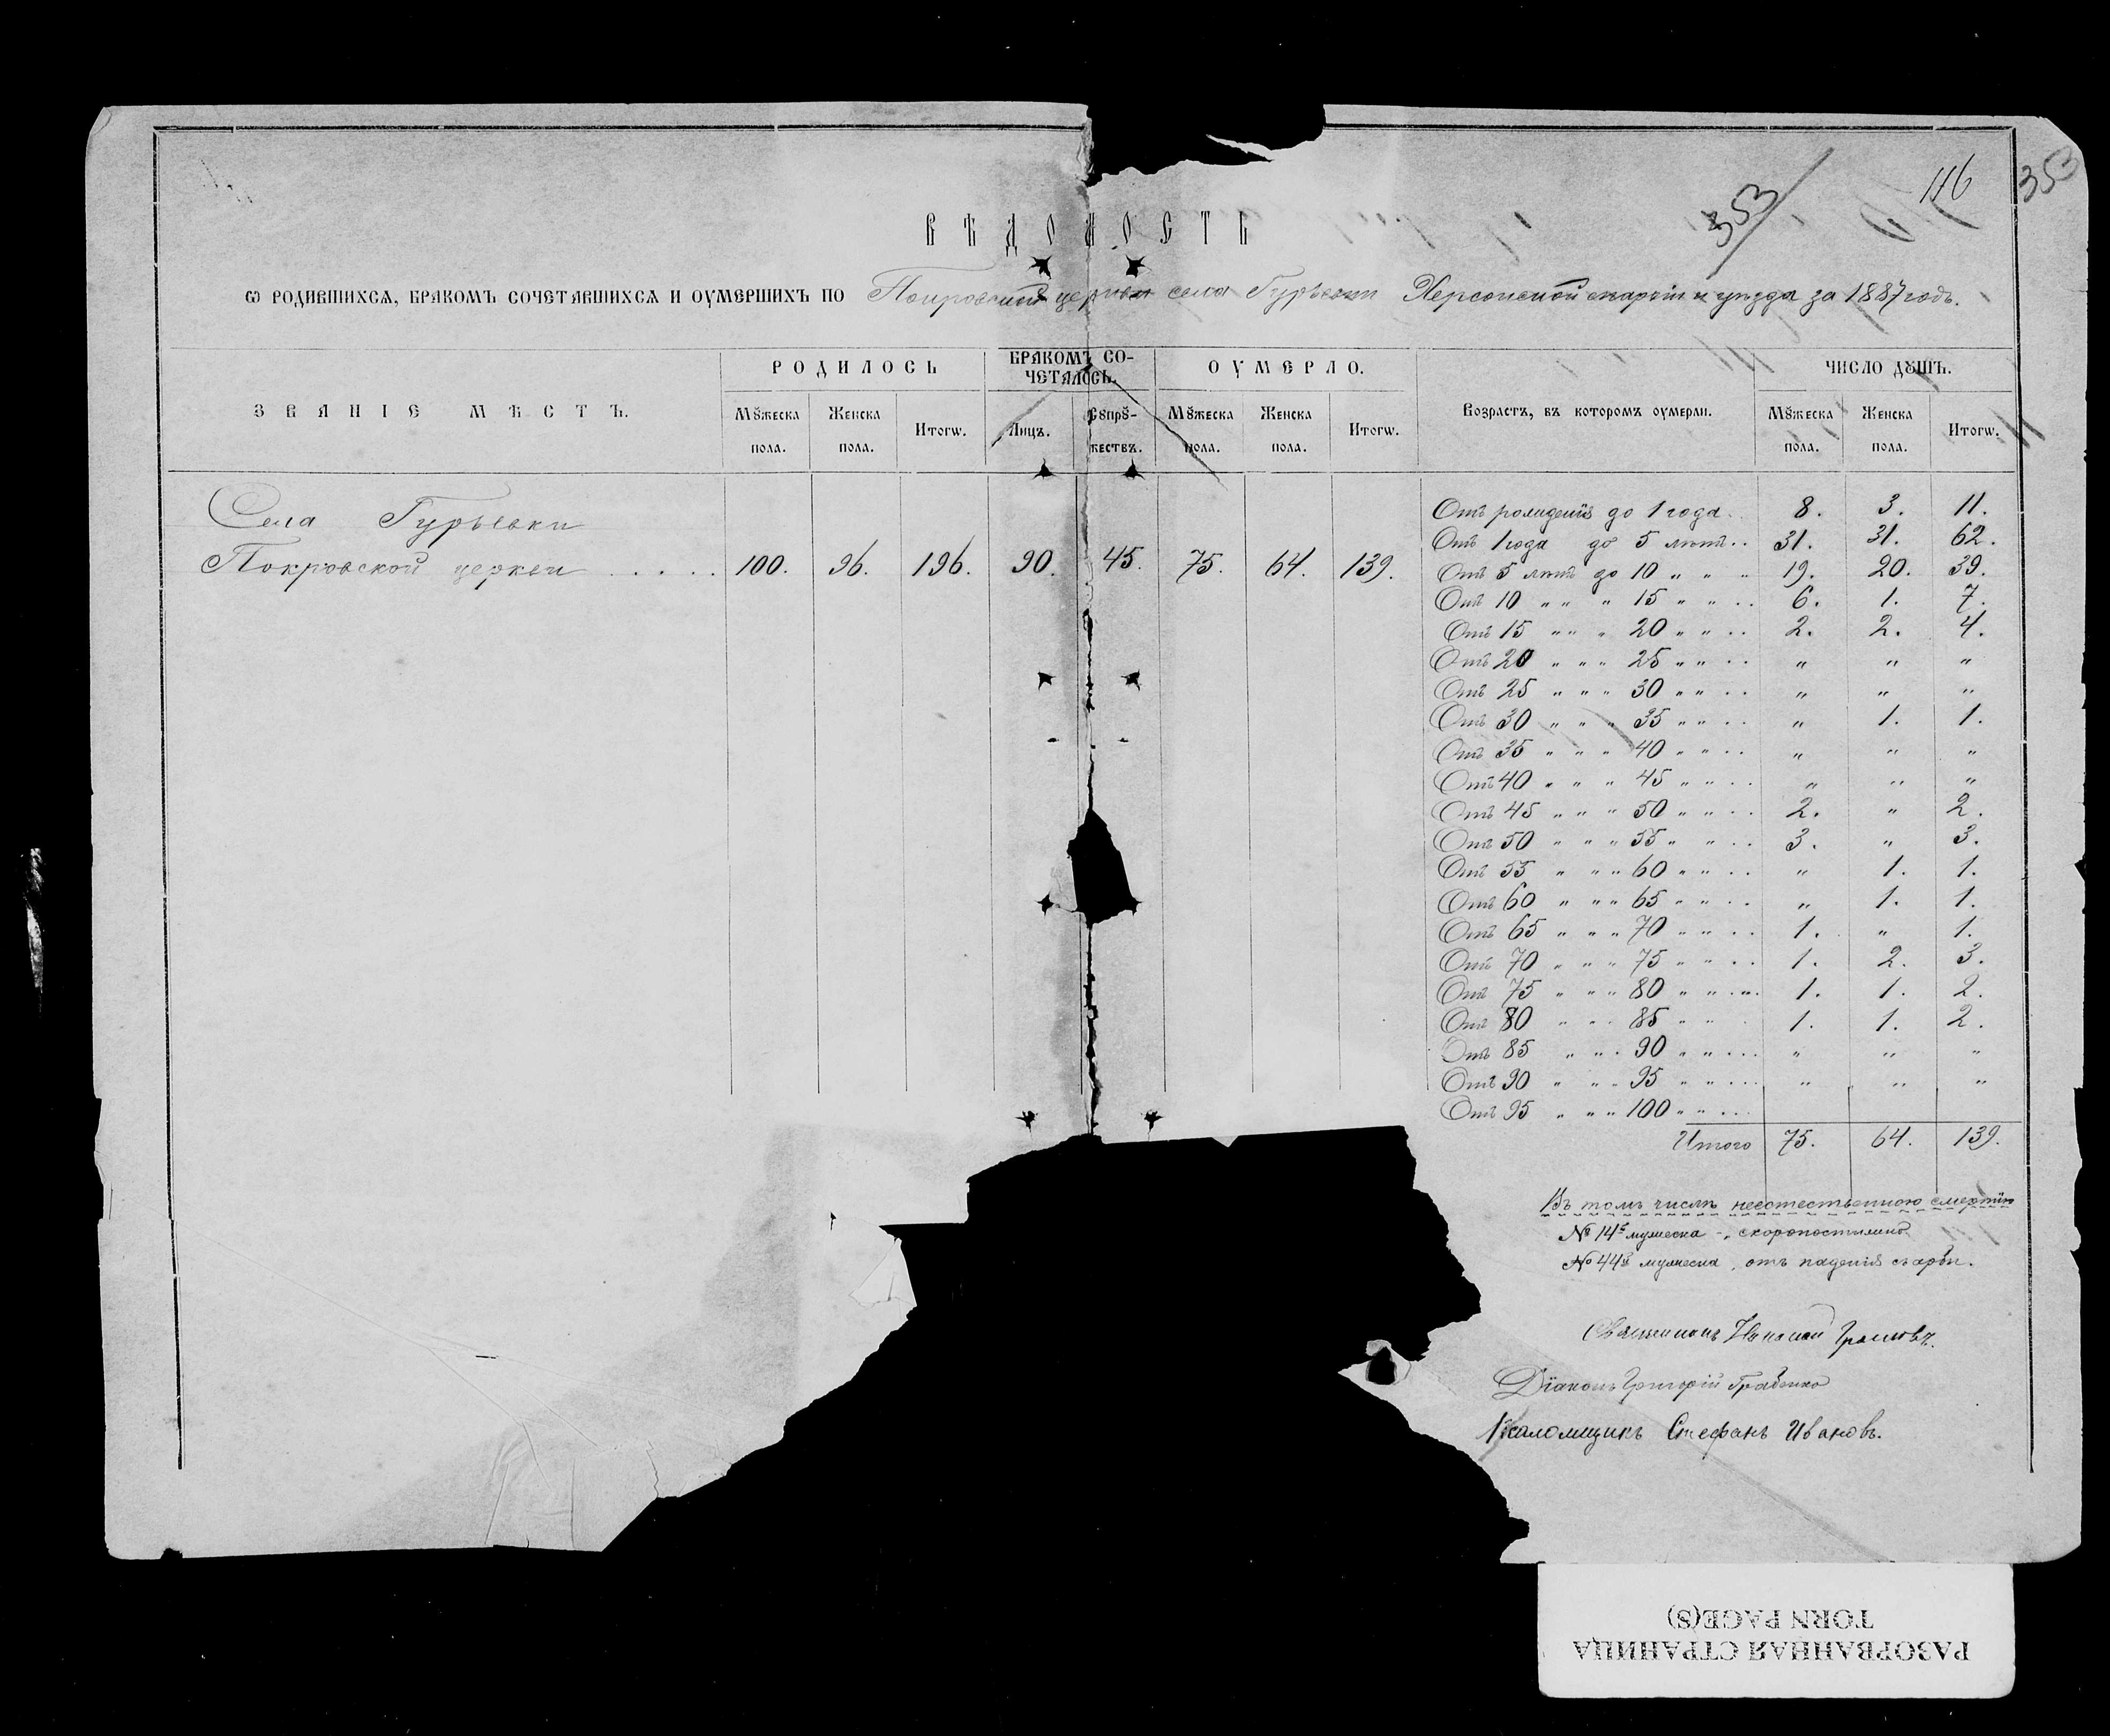 116
353
353
ВѢДОМОСТЬ
Ѡ РОДИВШИХСѦ, БРАКОМЪ СОЧЕТАВШИХСѦ И ОУМЕРШИХЪ ПО Покровской церкви села Гурьевки Херсонской епархіи и уѣзда за 1887 годъ.
ЗВАНІЕ МѢСТЪ.
РОДИЛОСЬ
БРАКОМЪ СО-
ЧЕТАЛОСЬ.
ОУМЕРЛО.
Возрастъ, въ которомъ оумерли.
ЧИСЛО ДꙊШЪ.
Мꙋжеска пола. Женска пола. Итогѡ. Лицъ. Сꙋпрꙋ-жествъ. Мꙋжеска пола. Женска пола. Итогѡ. Мꙋжеска пола. Женска пола. Итогѡ.
Села Гурьевки
Покровской церкви . . . . . 100. 96. 196. 90. 45. 75. 64. 139.
Отъ рожденія до 1 года . . 8. 3. 11.
Отъ 1 года до 5 лѣтъ . . 31. 31. 62.
Отъ 5 лѣтъ до 10 „ „ „ 19. 20. 39.
Отъ 10 „ „ „ 15 „ „ . . 6. 1. 7.
Отъ 15 „ „ „ 20 „ „ . . 2. 2. 4.
Отъ 20 „ „ „ 25 „ „ . . „ „ „
Отъ 25 „ „ „ 30 „ „ . . „ „ „
Отъ 30 „ „ „ 35 „ „ . . „ 1. 1.
Отъ 35 „ „ „ 40 „ „ . . „ „ „
Отъ 40 „ „ „ 45 „ „ . . „ „ „
Отъ 45 „ „ „ 50 „ „ . . 2. „ 2.
Отъ 50 „ „ „ 55 „ „ . . 3. „ 3.
Отъ 55 „ „ „ 60 „ „ . . „ 1. 1.
Отъ 60 „ „ „ 65 „ „ . . „ 1. 1.
Отъ 65 „ „ „ 70 „ „ . . 1. „ 1.
Отъ 70 „ „ „ 75 „ „ . . 1. 2. 3.
Отъ 75 „ „ „ 80 „ „ . . 1. 1. 2.
Отъ 80 „ „ „ 85 „ „ . 1. 1. 2.
Отъ 85 „ „ „ 90 „ „ . . . „ „ „
Отъ 90 „ „ „ 95 „ „ . . . „ „ „
Отъ 95 „ „ „ 100 „ „ . . .
Итого 75. 64. 139.
Въ томъ числѣ неестественною смертію
№ 14й мужеска -, скоропостижно
№ 44й мужеска, отъ паденія съ арбы.
Священникъ
Діаконъ Григорій Грабенко
Псаломщикъ Стефанъ Ивановъ.
РАЗОРВАННАЯ СТРАНИЦА
TORN PAGE(S)